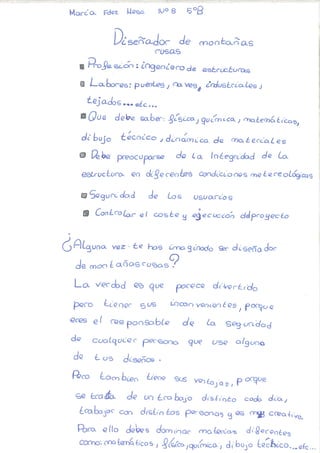 María Fdez Mesa Nº 8 5ºB
Diseñador de montañas
rusas
Profesión: ingeniero de estructuras
Labores: puentes, naves, industriales,
tejados... etc...
Que debe saber: física, química, matemáticas,
dibujo técnico, dinámica de materiales
Debe preocuparse de la Integridad de la
estructura en diferentes condiciones metereológicas
Seguridad de los usuarios
Controlar el coste y ejecucción del proyecto
¿Alguna vez te has imaginado ser diseñador
de montañas rusas?
La verdad es que parece divertido
pero tiener sus inconvenientes, porque
eres el responsable de la seguridad
de cualquier persona que use alguno
de tus diseños.
Pero tambien tiene sus ventajas, porque
se trata de un trabajo distinto cada dia,
trabajar con distintas personas y es muy creativo.
Para ello debes dominar materias diferentes
como: matemáticas, física, química, dibujo técnico...etc...